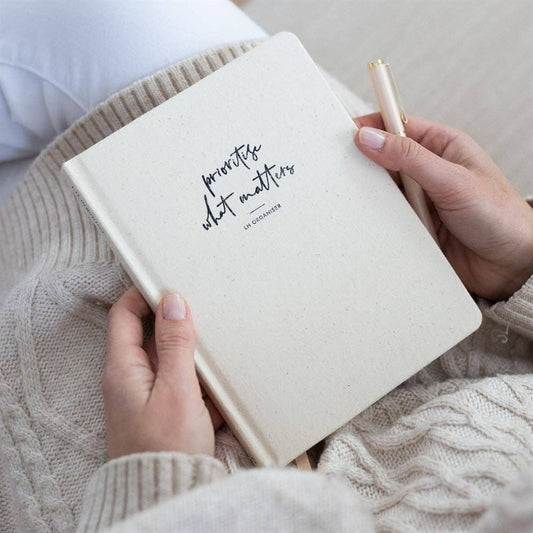 prioritise
what matters
LH ORGANISER